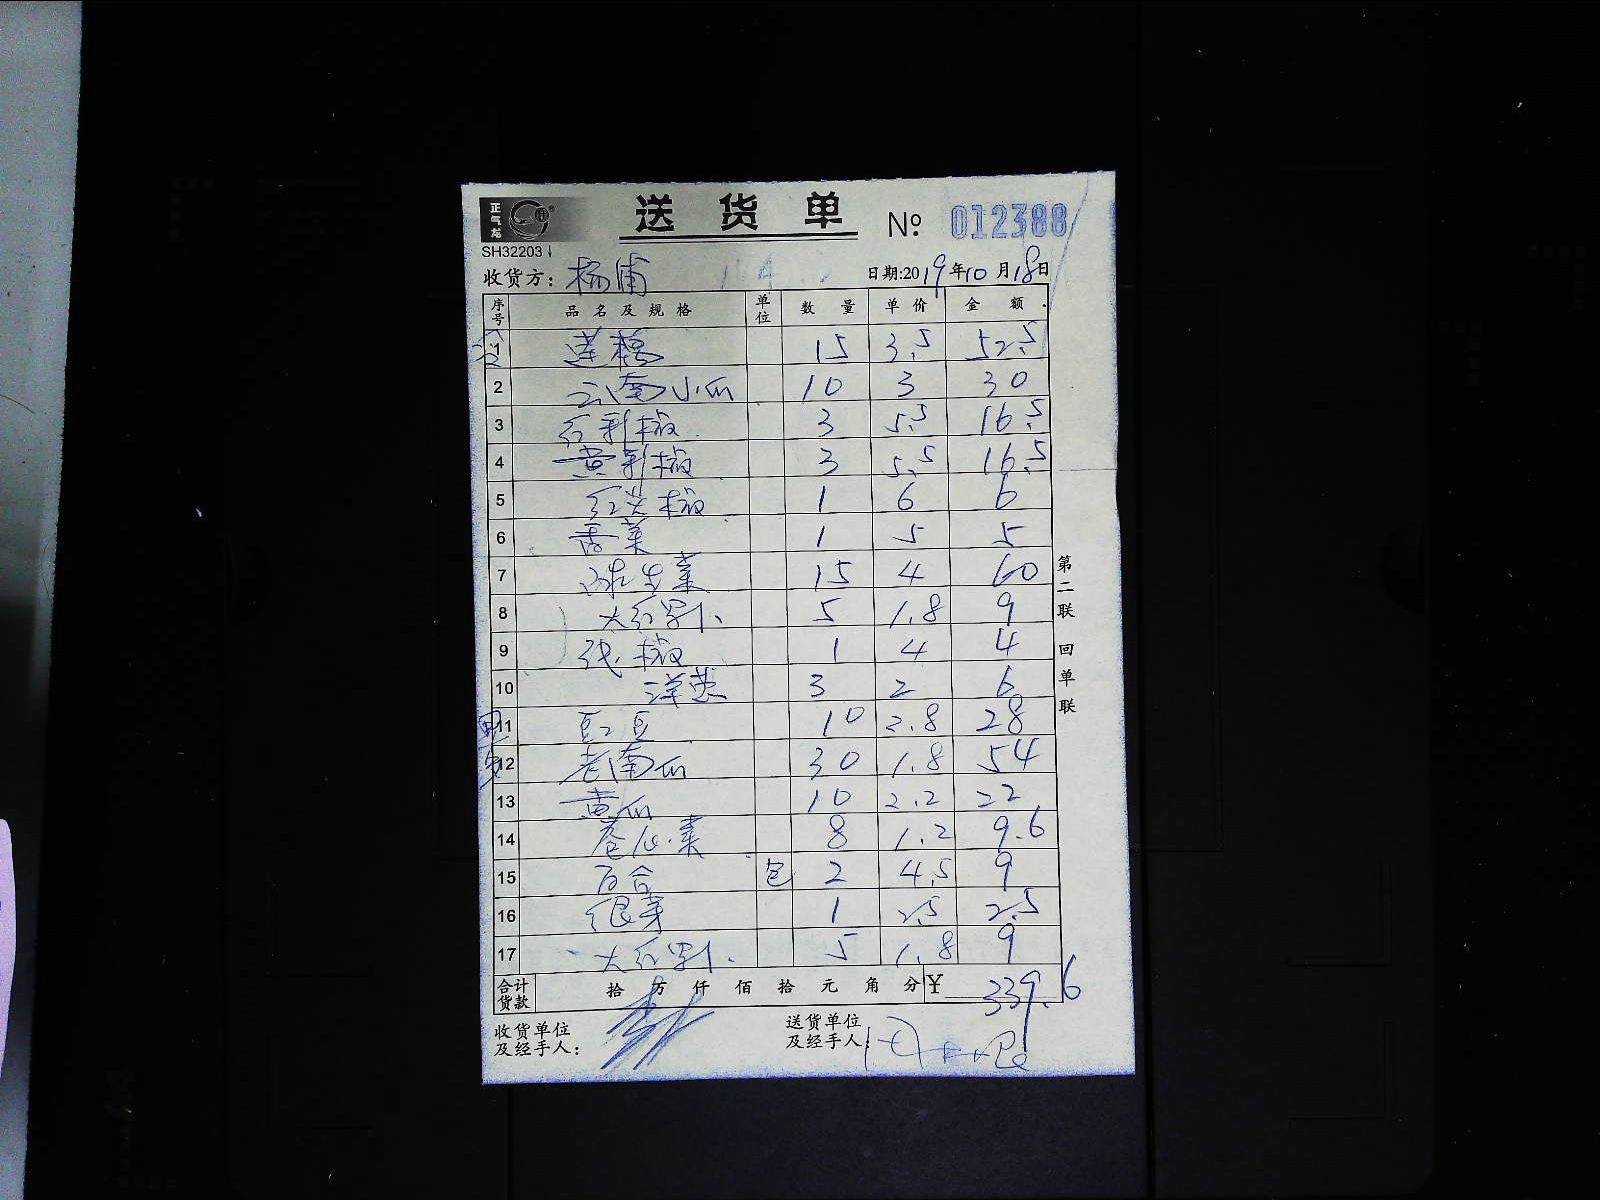 正气龙
送货单 № 012388
SH32203
收货方: 杨浦 日期:2019年10月18日
序号 品名及规格 单位 数量 单价 金额
1 莲藕 15 3.5 52.5
2 云南小瓜 10 3 30
3 红彩椒 3 5.5 16.5
4 黄彩椒 3 5.5 16.5
5 红尖椒 1 6 6
6 香菜 1 5 5
7 球生菜 15 4 60
8 大红 5 1.8 9
9 线椒 1 4 4
10 洋葱 3 2 6
11 豇豆 10 2.8 28
12 老南瓜 30 1.8 54
13 黄瓜 10 2.2 22
14 卷心菜 8 1.2 9.6
15 百合 包 2 4.5 9
16 银芽 1 2.5 2.5
17 大红 5 1.8 9
合计货款 拾 万 仟 佰 拾 元 角 分 ¥ 339.6
收货单位及经手人:
送货单位及经手人:
第二联 回单联